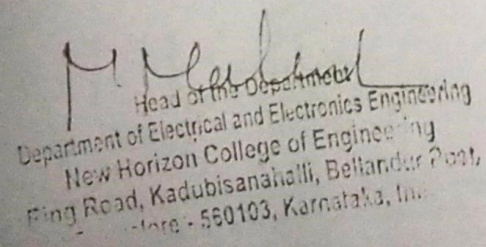 Head of the Department
Department of Electrical and Electronics Engineering
New Horizon College of Engineering
Ring Road, Kadubisanahalli, Bellandur Post,
560103, Karnataka,